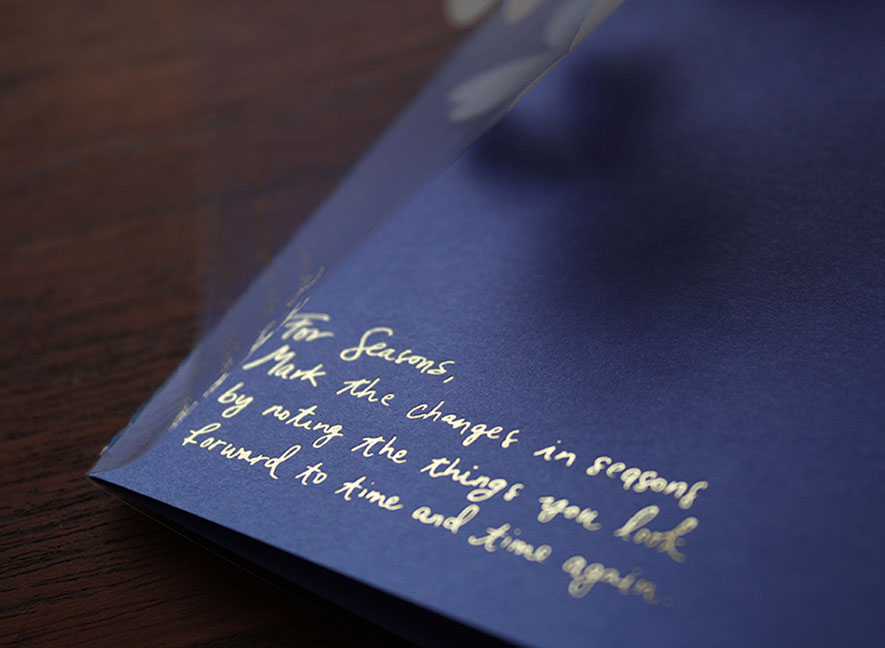 For Seasons,
Mark the changes in seasons
by noting the things you look
forward to time and time again.